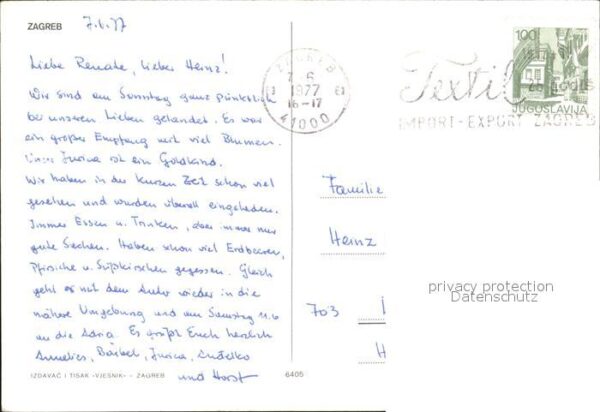 ZAGREB
7.6.77
Liebe Renate, lieber Heinz!
Wir sind am Sonntag ganz pünktlich
bei unseren Lieben gelandet. Es war
ein großer Empfang mit viel Blumen.
Unser Jurica ist ein Goldkind.
Wir haben in der kurzen Zeit schon viel
gesehen und wurden überall eingeladen.
Immer Essen u. Trinken, aber immer nur
gute Sachen. Haben schon viel Erdbeeren,
Pfirsiche u. Süßkirschen gegessen. Gleich
geht es mit dem Auto wieder in die
nähere Umgebung und am Samstag 11.6
an die Adria. Es grüßt Euch herzlich
Annelies, Bärbel, Jurica, Anđelko
und Horst
IZDAVAČ I TISAK »VJESNIK« – ZAGREB
6405
ZAGREB
7-6
1977
16-17
41000
Textil
IMPORT-EXPORT ZAGREB
100
JUGOSLAVIJA
Familie
Heinz
703
privacy protection
Datenschutz